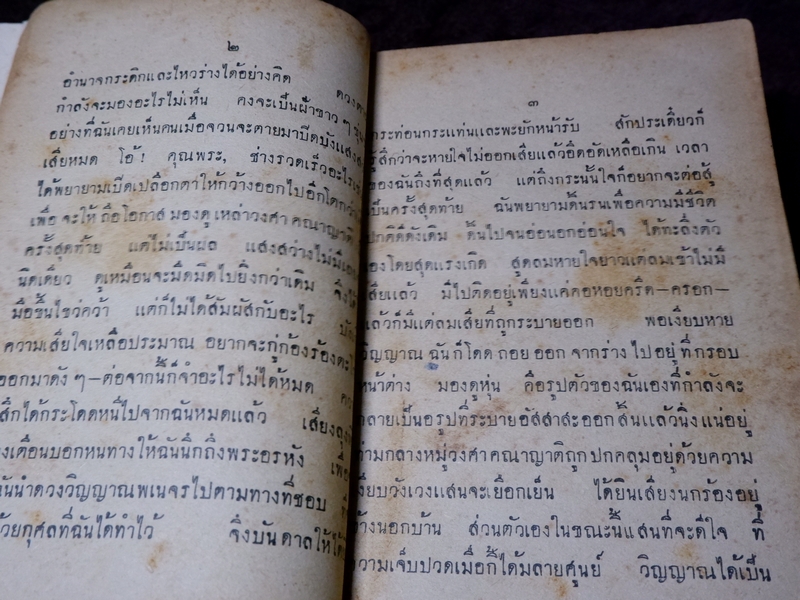 ๒
อำนาจกระดิกและไหวร่างได้อย่างคิด ดวงตา
กำลังจะมองอะไรไม่เห็น คงจะเป็นฝ้าขาว ๆ
อย่างที่ฉันเคยเห็นคนเมื่อจวนจะตายมาบีดบังแสง
เสียหมด โอ้! คุณพระ, ช่างรวดเร็วอะไร
ได้พยายามเบีดเปลือกตาให้กว้างออกไปอีกโตกว่า
เพื่อ จะให้ ถือโอกาส มองดู เหล่าวงศา คณาญาติ
ครั้งสุดท้าย แต่ไม่เป็นผล แสงสว่างไม่มี
นิดเดียว ดูเหมือนจะมืดมิดไปยิ่งกว่าเดิม
มือขึ้นไขว่คว้า แต่ก็ไม่ได้สัมผัสกับอะไร
ความเสียใจเหลือประมาณ อยากจะกู่ก้องร้อง
ออกมาดัง ๆ—ต่อจากนี้ก็จำอะไรไม่ได้หมด
สึกได้กระโดดหนีไปจากฉันหมดแล้ว เสียง
งเตือนบอกหนทางให้ฉันนึกถึงพระอรหัง เพื่อ
นำดวงวิญญาณพเนจรไปตามทางที่ชอบ
ด้วยกุศลที่ฉันได้ทำไว้ จึงบันดาลให้ได้
๓
กระท่อนกระแท่นและพะยักหน้ารับ สักประเดี๋ยวก็
รู้สึกว่าจะหายใจไม่ออกเสียแล้วอึดอัดเหลือเกิน เวลา
ของฉันถึงที่สุดแล้ว แต่ถึงกระนั้นใจก็อยากจะต่อสู้
เป็นครั้งสุดท้าย ฉันพยายามดิ้นรนเพื่อความมีชีวิต
ปกติดีดังเดิม ดิ้นไปจนอ่อนอกอ่อนใจ ได้ทะลึ่งตัว
องโดยสุดแรงเกิด สูดลมหายใจยาวแต่ลมเข้าไม่มี
เสียแล้ว มีไปติดอยู่เพียงแค่คอหอยครืด—ครอก—
แล้วก็มีแต่ลมเสียที่ถูกระบายออก พอเงียบหาย
วิญญาณ ฉัน ก็ โดด ถอย ออก จากร่าง ไป อยู่ ที่ กรอบ
หน้าต่าง มองดูหุ่น คือรูปตัวของฉันเองที่กำลังจะ
กลายเป็นอรูปที่ระบายอัสสาสะออกสิ้นแล้วนิ่งแน่อยู่
ท่ามกลางหมู่วงศาคณาญาติถูกปกคลุมอยู่ด้วยความ
เงียบวังเวงแสนจะเยือกเย็น ได้ยินเสียงนกร้องอยู่
ข้างนอกบ้าน ส่วนตัวเองในขณะนี้แสนที่จะดีใจ ที่
ความเจ็บปวดเมื่อกี้ได้มลายศูนย์ วิญญาณได้เป็น